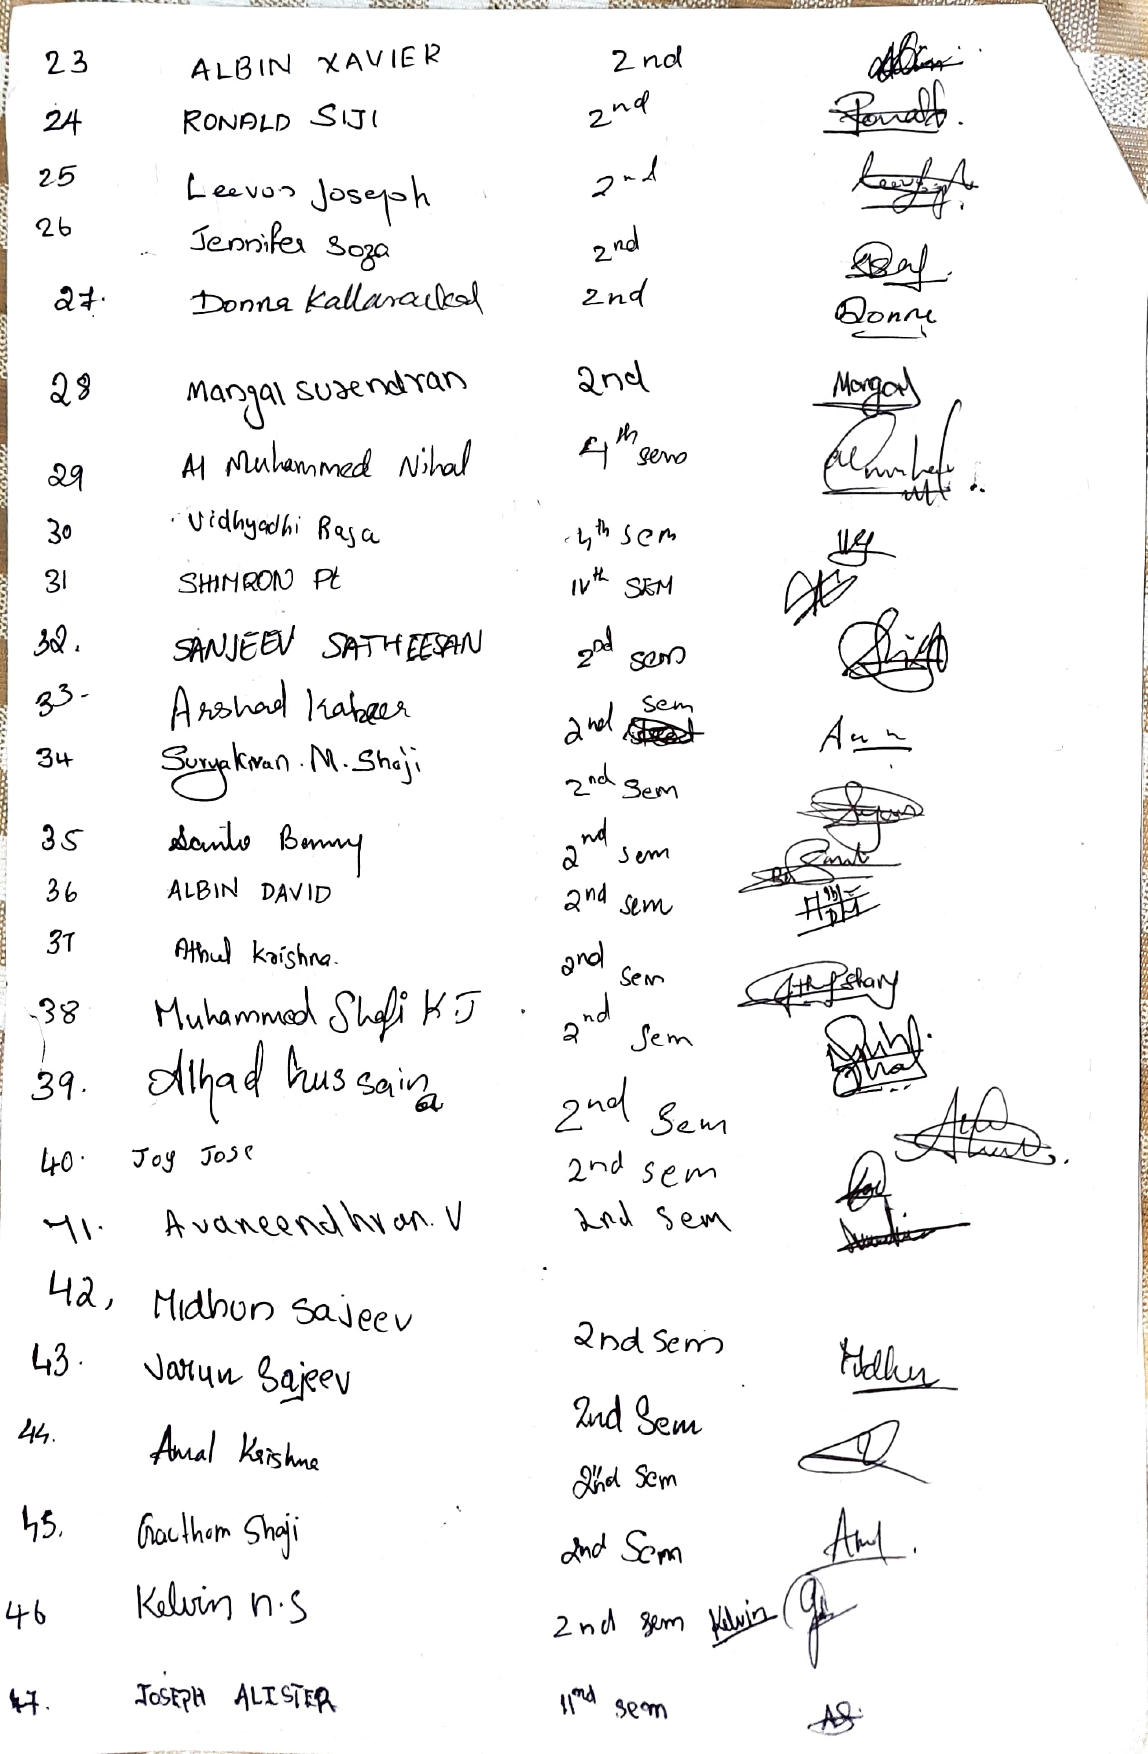 23 ALBIN XAVIER 2nd Albin
24 RONALD SIJI 2nd Ronald.
25 Leevon Joseph 2nd
26 Jennifer Soza 2nd
27. Donna Kallarackal 2nd Donna
28 Mangal surendran 2nd Mangal
29 Al Muhammed Nihal 4th sem
30 Vidhyadhi Raja 4th sem
31 SHIMRON Pt IVth SEM
32. SANJEEV SATHEESAN 2nd sem
33- Arshad Kabeer 2nd sem
34 Suryakiran. M. Shaji 2nd Sem
35 Benny 2nd sem
36 ALBIN DAVID 2nd sem
37 Athul Krishna. 2nd sem
38 Muhammed Shafi K J 2nd Sem
39. Alhad hussain 2nd Sem
40. Joy Jose 2nd sem
41. Avaneendhran. V 2nd Sem
42, Midhun Sajeev 2nd Sem Midhun
43. Varun Sajeev 2nd Sem
44. Amal Krishna 2nd Sem
45. Gautham Shaji 2nd Sem Amal.
46 Kelvin n.s 2nd sem Kelvin
47. JOSEPH ALISTER IInd sem